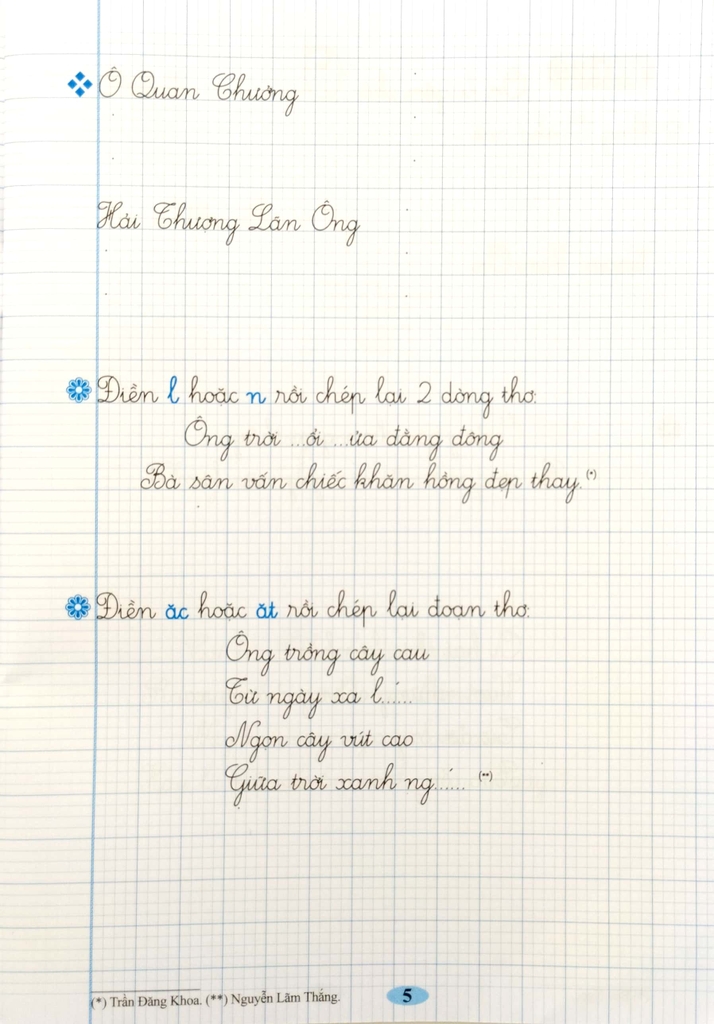 Ô Quan Chưởng
Hải Thượng Lãn Ông
Điền l hoặc n rồi chép lại 2 dòng thơ:
Ông trời ...ổi ...ửa đằng đông
Bà sân vấn chiếc khăn hồng đẹp thay.(*)
Điền ăc hoặc ăt rồi chép lại đoạn thơ:
Ông trồng cây cau
Từ ngày xa l...́...
Ngọn cây vút cao
Giữa trời xanh ng...́... (**)
(*) Trần Đăng Khoa. (**) Nguyễn Lãm Thắng.
5